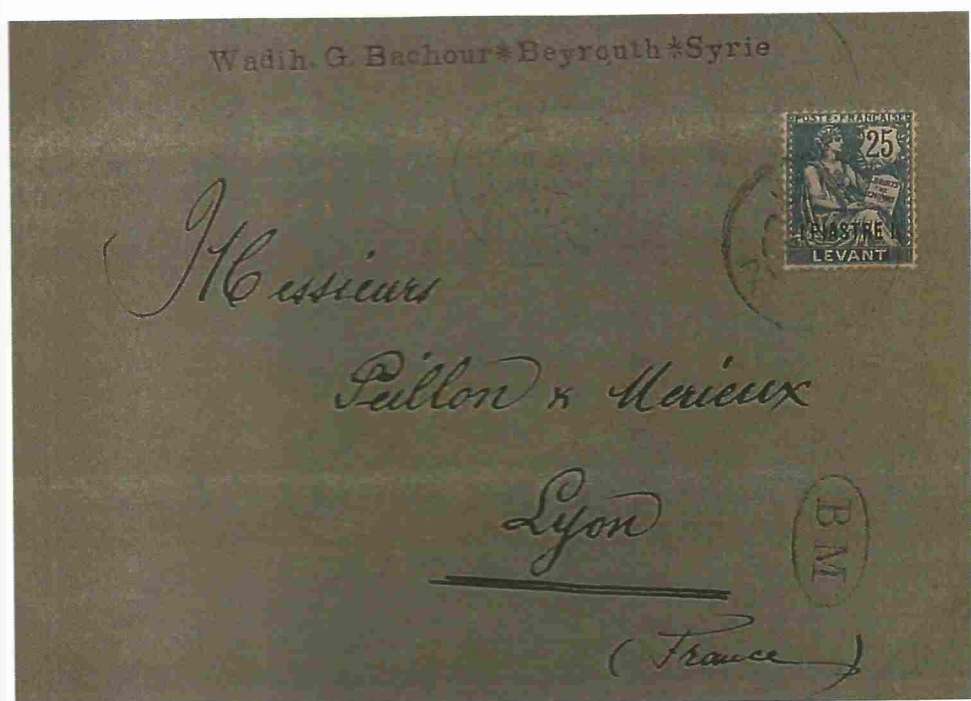 Wadih. G. Bachour*Beyrouth*Syrie
POSTE·FRANÇAISE
25
DROITS DE L'HOMME
1 PIASTRE 1
LEVANT
Messieurs
Peillon & Merieux
Lyon
BM
(France)